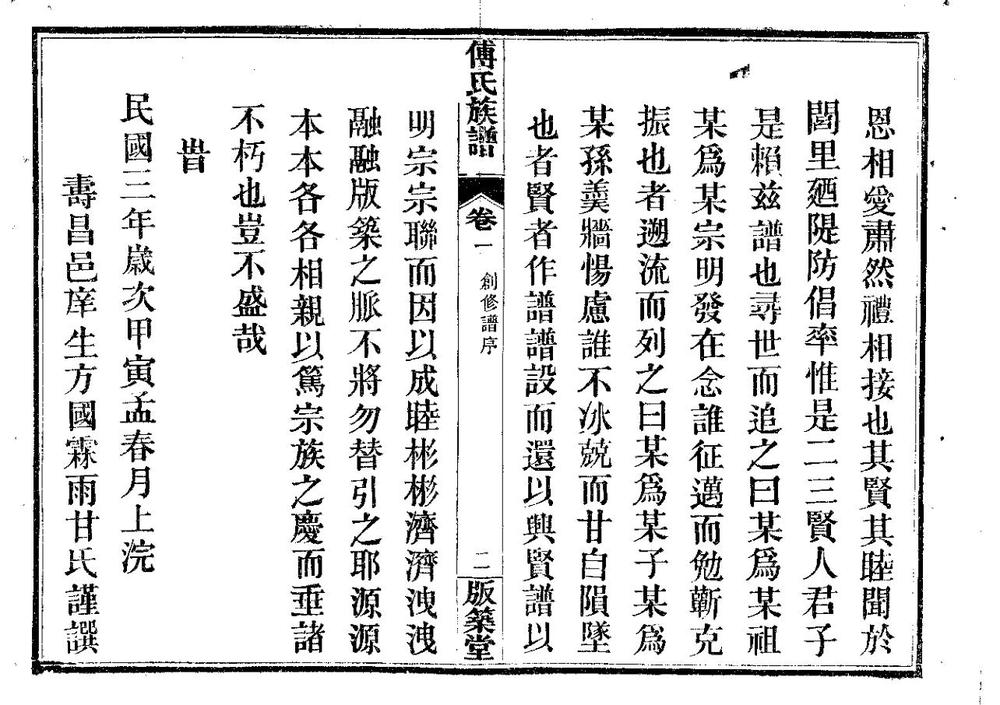 恩相愛肅然禮相接也其賢其睦聞於
閭里廼隄防倡率惟是二三賢人君子
是賴茲譜也尋世而追之曰某爲某祖
某爲某宗明發在念誰征邁而勉蘄克
振也者遡流而列之曰某爲某子某爲
某孫羹牆惕慮誰不冰兢而甘自隕墜
也者賢者作譜譜設而還以興賢譜以
傅氏族譜
卷一
創修譜序
二
版築堂
明宗宗聯而因以成睦彬彬濟濟洩洩
融融版築之脈不將勿替引之耶源源
本本各各相親以篤宗族之慶而垂諸
不朽也豈不盛哉
旹
民國三年歲次甲寅孟春月上浣
壽昌邑庠生方國霖雨甘氏謹譔